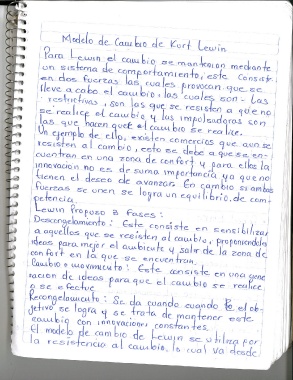 Modelo de Cambio de Kort Lewin
Para Lewin el cambio se mantenian mediante
un sistema de comportamiento, este consiste
en dos fuerzas las cuales provocan que se
lleve a cabo el cambio las cuales son - Las
restrictivas, son las que se resisten a que no
se realice el cambio y las impulsadoras son
las que hacen que el cambio se realice.
Un ejemplo de ello, existen comercios que aun se
resisten al cambio, esto se debe a que se en-
cuentran en una zona de confort y para ellos la
innovación no es de suma importancia ya que no
tienen el deseo de avanzar. En cambio si ambas
fuerzas se unen se logra un equilibrio, de com-
petencia.
Lewin Propuso 3 fases:
Descongelamiento: Este consiste en sensibilizar
a aquellos que se resisten al cambio, proponiendoles
ideas para mejor el ambiente y salir de la zona de
confort en la que se encuentran.
Cambio o movimiento: Este consiste en una gene
racion de ideas para que el cambio se realice
o se efectue
Recongelamiento: Se da cuando cuando el ob-
jetivo se logra y se trata de mantener este
cambio con innovaciones constantes.
El modelo de cambio de Lewin se utiliza por
la resistencia al cambio, lo cual va desde